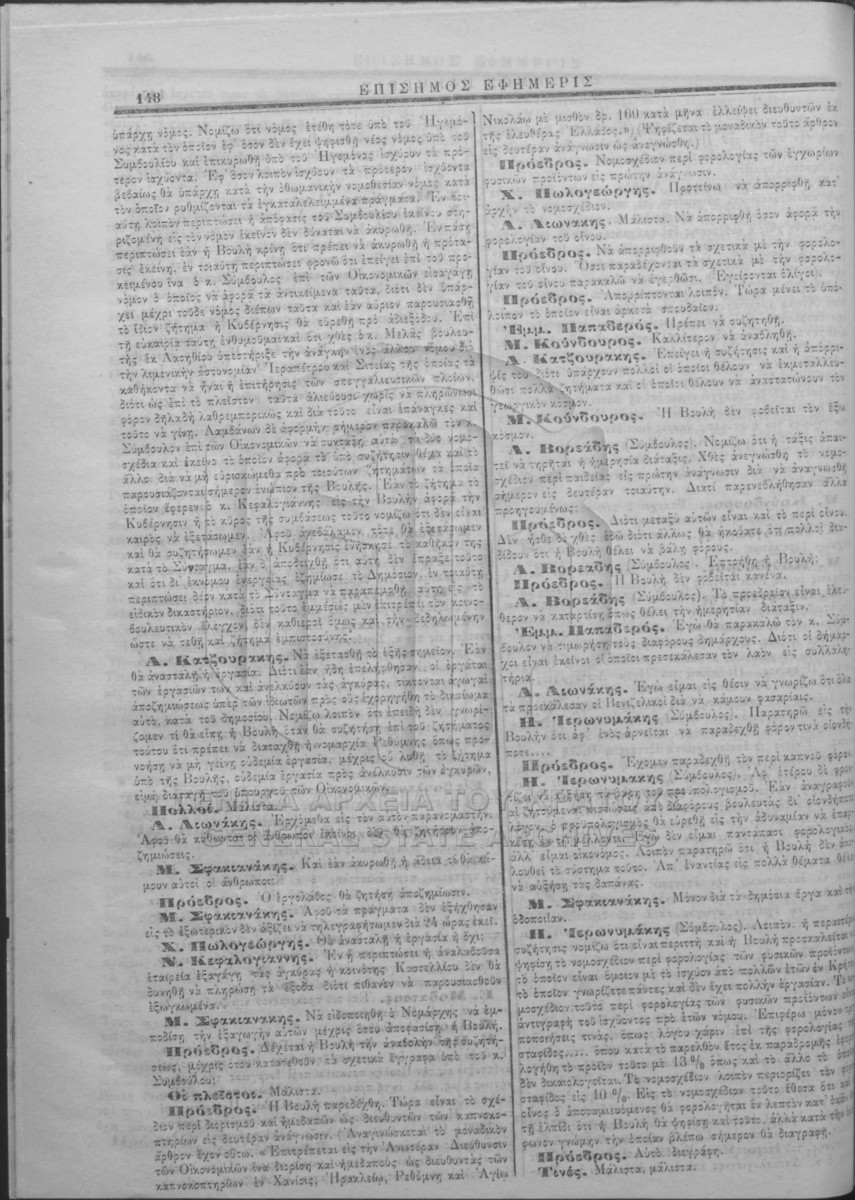 148
ΕΠΙΣΗΜΟΣ ΕΦΗΜΕΡΙΣ
ὑπάρχῃ νόμος. Νομίζω ὅτι νόμος ἐτέθη τότε ὑπὸ τοῦ Ἡγεμό-
νος κατὰ τὸν ὁποῖον ἐφ' ὅσον δὲν ἔχει ψηφισθῆ νέος νόμος ὑπὸ τοῦ
Συμβουλίου καὶ ἐπικυρωθῆ ὑπὸ τοῦ Ἡγεμόνος ἰσχύουν τὰ πρό-
τερον ἰσχύοντα. Ἐφ' ὅσον λοιπὸν ἰσχύουν τὰ πρότερον ἰσχύοντα
βεβαίως θὰ ὑπάρχῃ κατὰ τὴν ὀθωμανικὴν νομοθεσίαν νόμος κατὰ
τὸν ὁποῖον ρυθμίζονται τὰ ἐγκαταλελειμμένα πράγματα. Ἐν τοι-
αύτῃ λοιπὸν περιπτώσει ἡ ἀπόφασις τοῦ Συμβουλίου ἐκείνου στη-
ριζομένη εἰς τὸν νόμον ἐκεῖνον δὲν δύναται νὰ ἀκυρωθῇ. Ἐν πάσῃ
περιπτώσει ἐὰν ἡ Βουλὴ κρίνῃ ὅτι πρέπει νὰ ἀκυρωθῇ ἡ πρότα-
σις ἐκείνη, ἐν τοιαύτῃ περιπτώσει φρονῶ ὅτι ἐπείγει ἐπὶ τοῦ προ-
κειμένου ἵνα ὁ κ. Σύμβουλος ἐπὶ τῶν Οἰκονομικῶν εἰσαγάγῃ
νόμον ὁ ὁποῖος νὰ ἀφορᾷ τὰ ἀντικείμενα ταῦτα, διότι δὲν ὑπάρ-
χει μέχρι τοῦδε νόμος διέπων ταῦτα καὶ ἐὰν αὔριον παρουσιασθῇ
τὸ ἴδιον ζήτημα ἡ Κυβέρνησις θὰ εὑρεθῇ πρὸ ἀδιεξόδου. Ἐπὶ
τῇ εὐκαιρίᾳ ταύτῃ ἐνθυμοῦμαι καὶ ὅτι χθὲς ὁ κ. Μελᾶς βουλευ-
τὴς ἐκ Λασηθίου ὑπεστήριξε τὴν ἀνάγκην ἑνὸς ἄλλου νόμου διὰ
τὴν λιμενικὴν ἀστυνομίαν Ἱεραπέτρου καὶ Σιτείας τῆς ὁποίας τὰ
καθήκοντα νὰ ἦναι ἡ ἐπιτήρησις τῶν σπογγαλιευτικῶν πλοίων,
διότι ὡς ἐπὶ τὸ πλεῖστον ταῦτα ἁλιεύουσι χωρὶς νὰ πληρώνωσι
φόρον δηλαδὴ λαθρεμπορικῶς καὶ διὰ τοῦτο εἶναι ἐπάναγκες καὶ
τοῦτο νὰ γίνῃ. Λαμβάνων δὲ ἀφορμὴν σήμερον παρακαλῶ τὸν κ.
Σύμβουλον ἐπὶ τῶν Οἰκονομικῶν νὰ συντάξῃ αὐτὰ τὰ δύο νομο-
σχέδια καὶ ἐκεῖνο τὸ ὁποῖον ἀφορᾷ τὸ ὑπὸ συζήτησιν θέμα καὶ τὸ
ἄλλο διὰ νὰ μὴ εὑρισκώμεθα πρὸ τοιούτων ζητημάτων τὰ ὁποῖα
παρουσιάζονται σήμερον ἐνώπιον τῆς Βουλῆς. Ἐὰν τὸ ζήτημα τὸ
ὁποῖον ἔφερεν ὁ κ. Κεφαλογιάννης εἰς τὴν Βουλὴν ἀφορᾷ τὴν
Κυβέρνησιν ἢ τὸ κῦρος τῆς συμβάσεως τοῦτο νομίζω ὅτι δὲν εἶναι
καιρὸς νὰ ἐξετάσωμεν. Ἀφοῦ ἀνεβάλαμεν τότε θὰ ἐξετάσωμεν
καὶ θὰ συζητήσωμεν ἐὰν ἡ Κυβέρνησις ἐνήσκησε τὸ καθῆκον της
κατὰ τὸ Σύνταγμα, ἐὰν ὃ ἀποδειχθῇ ὅτι αὕτη δὲν ἔπραξε τοῦτο
καὶ ὅτι δι' ἐκνόμου ἐνεργείας ἐζημίωσε τὸ Δημόσιον, ἐν τοιαύτῃ
περιπτώσει δέον κατὰ τὸ Σύνταγμα νὰ παραπεμφθῇ αὕτη εἰς τὸ
εἰδικὸν δικαστήριον, διότι τοῦτο ἐμμέσως μὲν ἐπιτρέπει τὸν κοινο-
βουλευτικὸν ἔλεγχον, δὲν καθιεροῖ ὅμως καὶ τὴν δεδηλωμένην
ὥστε νὰ τεθῇ καὶ ζήτημα ἐμπιστοσύνης.
Α. Κατζουράκης. Νὰ ἐξετασθῇ τὸ ἑξῆς σημεῖον. Ἐὰν
θὰ ἀνασταλῇ ἡ ἐργασία. Διότι ἐὰν ἤδη ἐπελήφθησαν οἱ ἐργάται
τῶν ἐργασιῶν των καὶ ἀνελκύουν τὰς ἀγκύρας, τίκτονται ἀγωγαὶ
ἀποζημιώσεως ὑπὲρ τῶν ἰδιωτῶν πρὸς οὓς ἐχορηγήθη τὸ δικαίωμα
αὐτὸ, κατὰ τοῦ δημοσίου. Νομίζω λοιπὸν ὅτι ἐπειδὴ δὲν γνωρί-
ζομεν τί θὰ εἴπῃ ἡ Βουλὴ ὅταν θὰ συζητήσῃ ἐπὶ τοῦ ζητήματος
τούτου ὅτι πρέπει νὰ διαταχθῇ ἡ νομαρχία Ῥεθύμνης ὅπως προ-
νοήσῃ νὰ μὴ γείνῃ οὐδεμία ἐργασία, μέχρις οὗ λυθῇ τὸ ζήτημα
ὑπὸ τῆς Βουλῆς, οὐδεμία ἐργασία πρὸς ἀνέλκυσιν τῶν ἀγκυρῶν,
εἰμὴ διαταγῇ τοῦ ὑπουργοῦ τῶν Οἰκονομικῶν.
Πολλοί. Μάλιστα.
Α. Λιωνάκης. Ἐρχόμεθα εἰς τὸν αὐτὸν παρανομαστήν.
Ἀφοῦ θὰ κάθωνται οἱ ἄνθρωποι ἐκεῖνοι δὲν θὰ ζητήσουν ἀπο-
ζημιώσεις.
Μ. Σφακιανάκης. Καὶ ἐὰν ἀκυρωθῇ ἡ ἄδεια τί θὰ κά-
μουν αὐτοὶ οἱ ἄνθρωποι;
Πρόεδρος. Ὁ ἐργολάβος θὰ ζητήσῃ ἀποζημίωσιν.
Μ. Σφακιανάκης. Ἀφοῦ τὰ πράγματα δὲν ἐξήχθησαν
εἰς τὸ ἐξωτερικὸν δὲν ἀξίζει νὰ τηλεγραφήσωμεν διὰ 24 ὥρας ἐκεῖ.
Χ. Πωλογεώργης. Θὰ ἀνασταλῇ ἡ ἐργασία ἢ ὄχι;
Ν. Κεφαλογιάννης. Ἐν ᾗ περιπτώσει ἡ ἀναλαβοῦσα
ἑταιρεία ἐξαγάγῃ τὰς ἀγκύρας ἡ κοινότης Καστελλίου δὲν θὰ
δυνηθῇ νὰ πληρώσῃ τὰ ἔξοδα διότι πιθανὸν νὰ παρουσιασθοῦν
ἐξωγκωμένα.
Μ. Σφακιανάκης. Νὰ εἰδοποιηθῇ ὁ Νομάρχης νὰ ἐμ-
ποδίσῃ τὴν ἐξαγωγὴν αὐτῶν μέχρις ὅτου ἀποφασίσῃ ἡ Βουλή.
Πρόεδρος. Δέχεται ἡ Βουλὴ τὴν ἀναβολὴν τῆς συζητή-
σεως, μέχρις ὅτου κατατεθοῦν τὰ σχετικὰ ἔγγραφα ὑπὸ τοῦ κ.
Συμβούλου;
Οἱ πλεῖστοι. Μάλιστα.
Πρόεδρος. Ἡ Βουλὴ παρεδέχθη. Τώρα εἶναι τὸ σχέ-
διον περὶ διορισμοῦ καὶ ἡμεδαπῶν ὡς διευθυντῶν τῶν καπνοκο-
πτηρίων εἰς δευτέραν ἀνάγνωσιν. (Ἀναγινώσκεται τὸ μοναδικὸν
ἄρθρον ἔχον οὕτω. «Ἐπιτρέπεται εἰς τὴν Ἀνωτέραν Διεύθυνσιν
τῶν Οἰκονομικῶν ἵνα διορίσῃ καὶ ἡμεδαποὺς ὡς διευθυντὰς τῶν
καπνοκοπτηρίων ἐν Χανίοις, Ἡρακλείῳ, Ῥεθύμνῃ καὶ Ἁγίῳ
Νικολάῳ μὲ μισθὸν δρ. 160 κατὰ μῆνα ἐλλείψει διευθυντῶν ἐκ
τῆς ἐλευθέρας Ἑλλάδος.») (Ἐψηφίζεται τὸ μοναδικὸν τοῦτο ἄρθρον
εἰς δευτέραν ἀνάγνωσιν ὡς ἀνεγνώσθη.)
Πρόεδρος. Νομοσχέδιον περὶ φορολογίας τῶν ἐγχωρίων
φυσικῶν προϊόντων εἰς πρώτην ἀνάγνωσιν.
Χ. Πωλογεώργης. Προτείνω νὰ ἀπορριφθῇ κατ'
ἀρχὴν τὸ νομοσχέδιον.
Α. Λιωνάκης. Μάλιστα. Νὰ ἀπορριφθῇ ὅσον ἀφορᾷ τὴν
φορολογίαν τοῦ οἴνου.
Πρόεδρος. Νὰ ἀπορριφθοῦν τὰ σχετικὰ μὲ τὴν φορολο-
γίαν τοῦ οἴνου. Ὅσοι παραδέχονται τὰ σχετικὰ μὲ τὴν φορολο-
γίαν τοῦ οἴνου παρακαλῶ νὰ ἐγερθῶσι. (Ἐγείρονται ὀλίγοι.)
Πρόεδρος. Ἀπορρίπτονται λοιπόν. Τώρα μένει τὸ ὑπό-
λοιπον τὸ ὁποῖον εἶναι ἀρκετὰ σπουδαῖον.
Ἐμμ. Παπαδερός. Πρέπει νὰ συζητηθῇ.
Μ. Κούνδουρος. Καλλίτερον νὰ ἀναβληθῇ.
Α. Κατζουράκης. Ἐπείγει ἡ συζήτησις καὶ ἡ ἀπόρρι-
ψίς του διότι ὑπάρχουν πολλοὶ οἱ ὁποῖοι θέλουν νὰ ἐκμεταλλευ-
θῶσι πολλὰ ζητήματα καὶ οἱ ὁποῖοι θέλουν νὰ ἀναστατώνουν τὸν
γεωργικὸν κόσμον.
Μ. Κούνδουρος. Ἡ Βουλὴ δὲν φοβεῖται τὸν ἔξω
κόσμον.
Α. Βορεάδης (Σύμβουλος). Νομίζω ὅτι ἡ τάξις ἀπαι-
τεῖ νὰ τηρῆται ἡ ἡμερησία διάταξις. Χθὲς ἀνεγνώσθη τὸ νομο-
σχέδιον περὶ παιδείας εἰς πρώτην ἀνάγνωσιν διὰ νὰ ἀναγνωσθῇ
σήμερον εἰς δευτέραν τοιαύτην. Διατί παρενεβλήθησαν ἄλλα
προηγουμένως;
Πρόεδρος. Διότι μεταξὺ αὐτῶν εἶναι καὶ τὸ περὶ οἴνου.
Δὲν ἦσθε δὲ χθὲς ἐδῶ διότι ἄλλως θὰ ἠκούατε ὅτι πολλοὶ δια-
δίδουν ὅτι ἡ Βουλὴ θέλει νὰ βάλῃ φόρους.
Α. Βορεάδης (Σύμβουλος). Ἐπτοήθη ἡ Βουλή;
Πρόεδρος. Ἡ Βουλὴ δὲν φοβεῖται κανένα.
Α. Βορεάδης (Σύμβουλος). Τὸ προεδρεῖον εἶναι ἐλεύ-
θερον νὰ καταρτίσῃ ὅπως θέλει τὴν ἡμερησίαν διάταξιν.
Ἐμμ. Παπαδερός. Ἐγὼ θὰ παρακαλῶ τὸν κ. Σύμ-
βουλον νὰ τιμωρήσῃ τοὺς διαφόρους δημάρχους. Διότι οἱ δήμαρ-
χοι εἶναι ἐκεῖνοι οἱ ὁποῖοι προσεκάλεσαν τὸν λαὸν εἰς συλλαλη-
τήρια.
Α. Λιωνάκης. Ἐγὼ εἶμαι εἰς θέσιν νὰ γνωρίζω ὅτι ὅλα
τὰ προεκάλεσαν οἱ Βενιζελικοὶ διὰ νὰ κάμουν φασαρίαις.
Η. Ἱερωνυμάκης (Σύμβουλος). Παρατηρῶ εἰς τὴν
Βουλὴν ὅτι ἀφ' ἑνὸς ἀρνεῖται νὰ παραδεχθῇ φόρον τινὰ οἱονδή-
ποτε....
Πρόεδρος. Ἔχομεν παραδεχθῆ τὸν περὶ καπνοῦ φόρον.
Η. Ἱερωνυμάκης (Σύμβουλος). Ἀφ' ἑτέρου δὲ
Μ. Σφακιανάκης. Μόνον διὰ τὰ δημόσια ἔργα καὶ τὴν
ὁδοποιΐαν.
Η. Ἱερωνυμάκης (Σύμβουλος). Λοιπὸν ἡ περαιτέρω
συζήτησις νομίζω ὅτι εἶναι περιττὴ καὶ ἡ Βουλὴ προσκαλεῖται νὰ
ψηφίσῃ τὸ νομοσχέδιον περὶ φορολογίας τῶν φυσικῶν προϊόντων
τὸ ὁποῖον εἶναι ὅμοιον μὲ τὸ ἰσχῦον ἀπὸ πολλῶν ἐτῶν ἐν Κρήτῃ
τὸ ὁποῖον γνωρίζετε πάντες καὶ δὲν ἔχει πολλὴν ἐργασίαν. Τὸ νο-
μοσχέδιον τοῦτο περὶ φορολογίας τῶν φυσικῶν προϊόντων εἶναι
ἀντιγραφὴ τοῦ ἰσχύοντος πρὸ ἐτῶν νόμου. Ἐπιφέρω μόνον τρο-
ποποιήσεις τινάς, ὅπως λόγου χάριν ἐπὶ τῆς φορολογίας τῆς
σταφίδος..... ὅπου κατὰ τὸ παρελθὸν ἔτος ἐκ παραδρομῆς ἐφορο-
λογήθη τὸ προϊὸν τοῦτο μὲ 13 % ὅπως καὶ τὸ ἄλλο τὸ ὁποῖον
δὲν δικαιολογεῖται. Τὸ νομοσχέδιον λοιπὸν περιορίζει τὸν φόρον
σταφίδος εἰς 10 %. Εἰς τὸ νομοσχέδιον τοῦτο ἔθεσα ὅτι καὶ ὁ
οἶνος ὁ ἀποταμιευόμενος θὰ φορολογῆται ἓν λεπτὸν κατ' ὀκᾶν
τῇ ἐλπίδι ὅτι ἡ Βουλὴ θὰ ψηφίσῃ καὶ τοῦτο, ἀλλὰ κατὰ τὴν σύμ-
φωνον γνώμην τὴν ὁποίαν βλέπω σήμερον θὰ διαγραφῇ.
Πρόεδρος. Αὐτὸ διεγράφη.
Τινές. Μάλιστα, μάλιστα.